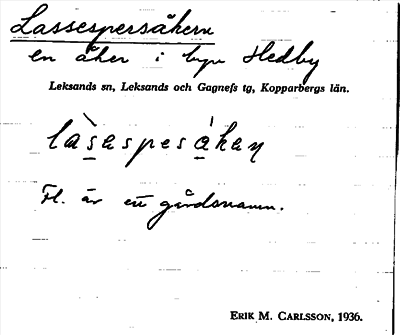 Lassespersåkern
en åker i byn Hedby
Leksands sn, Leksands och Gagnefs tg, Kopparbergs län.
làsaspesákaɳ
Fl. är ett gårdsnamn.
ERIK M. CARLSSON, 1936.